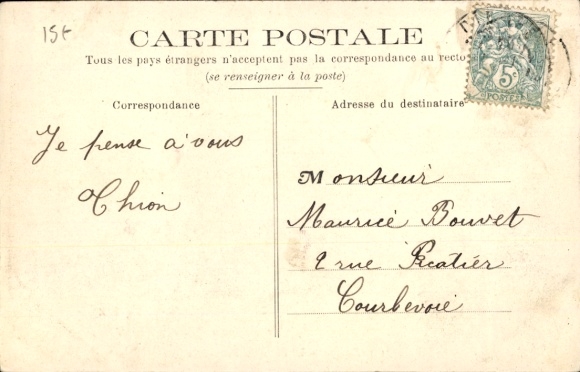 15t
CARTE POSTALE
Tous les pays étrangers n'acceptent pas la correspondance au recto
(se renseigner à la poste)
Correspondance
Adresse du destinataire
Je pense a' vous
Thion
Monsieur
Maurice Bouvet
2 rue Ficatier
Courbevoie
5c